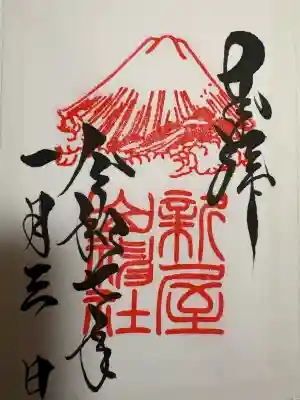 奉拝
新屋
山神社
令和七年
一月三日